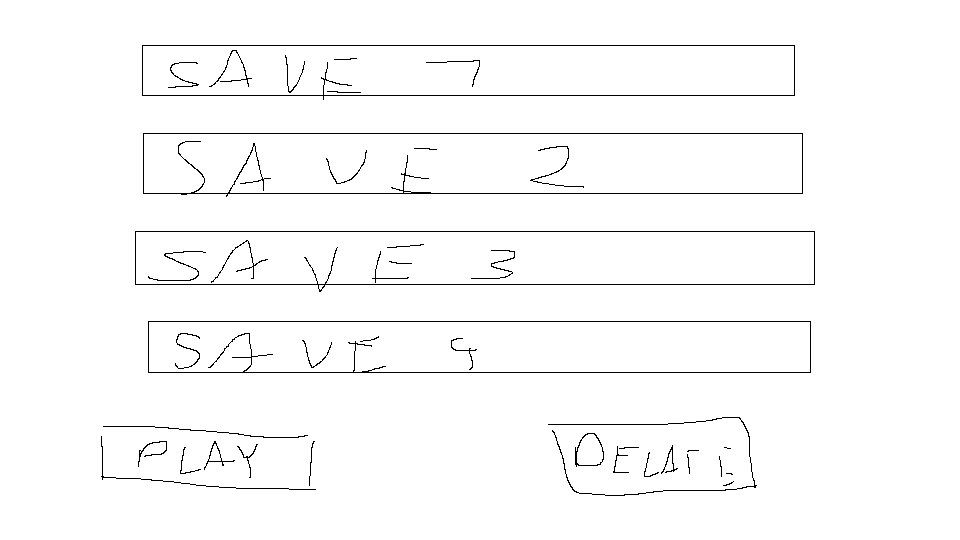 SAVE 1
SAVE 2
SAVE 3
SAVE 4
PLAY
DELATE